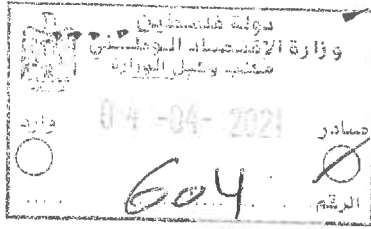 دولة فلسطين
وزارة الاقتصاد الوطني
مكتب وكيل الوزارة
04-04-2021
صادر وارد
الرقم 604